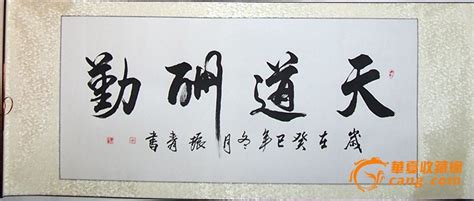 天道酬勤
歲在癸巳年冬月振春書
華夏收藏網
cang.com